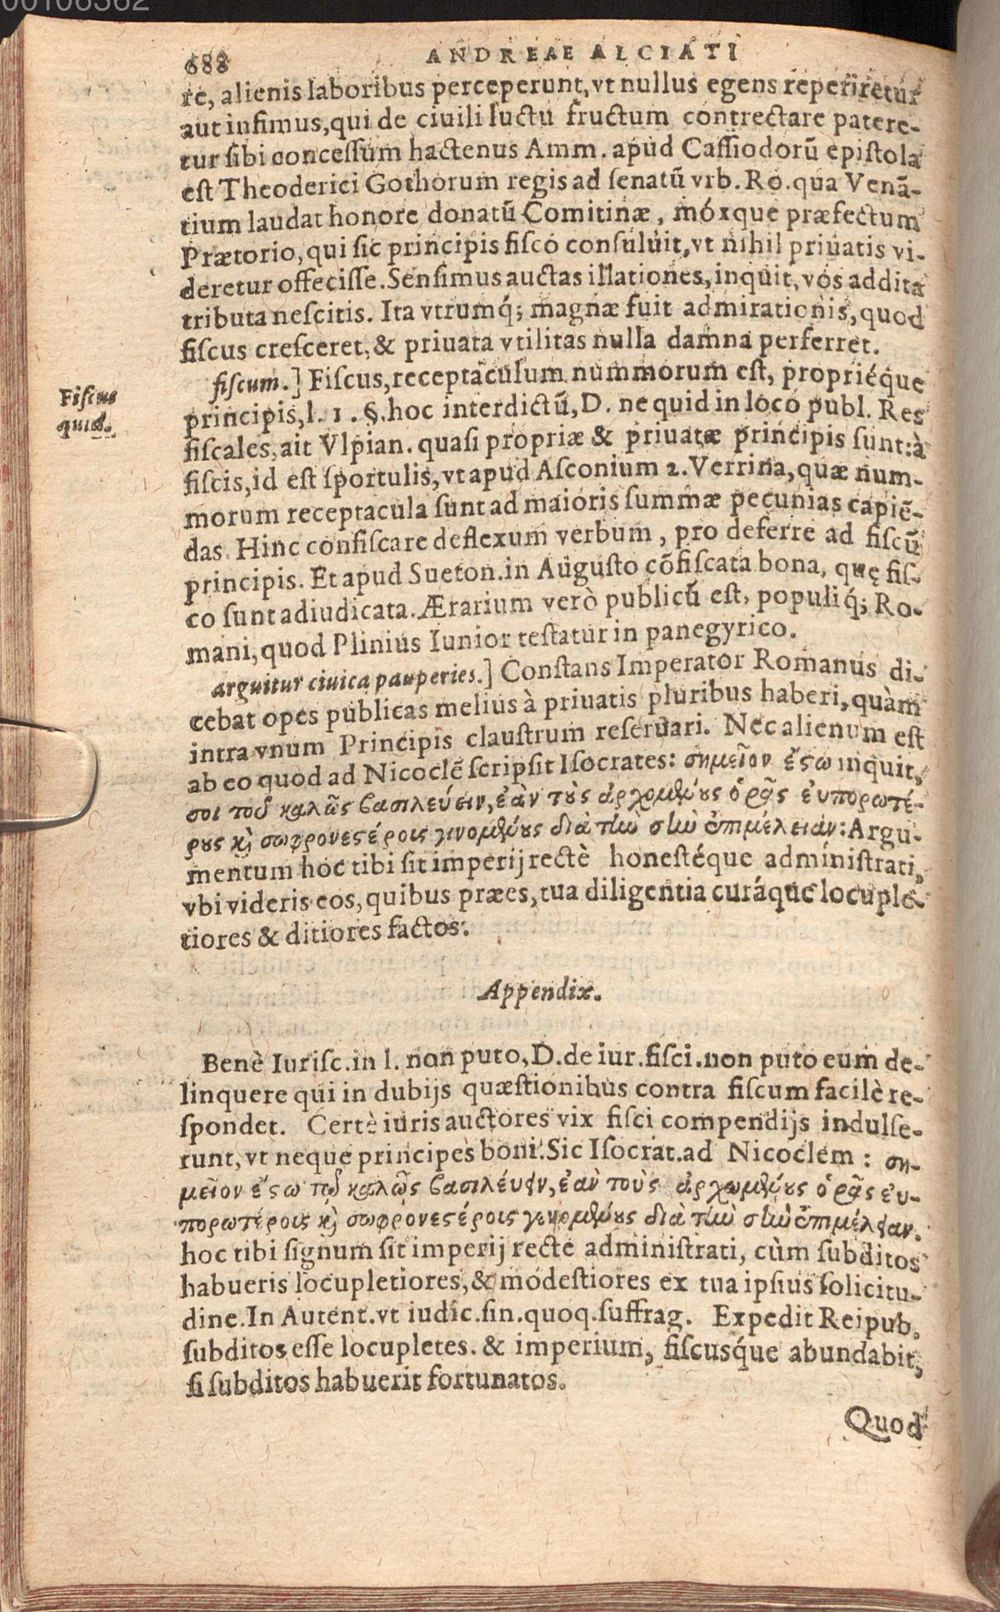 00106362
688 ANDREAE ALCIATI
re, alienis laboribus perceperunt, vt nullus egens reperiretur
aut infimus, qui de ciuili luctu fructum contrectare patere-
tur sibi concessum hactenus Amm. apud Cassiodorũ epistola
est Theoderici Gothorum regis ad senatũ vrb. Ro. qua Venã-
tium laudat honore donatũ Comitinæ, móxque præfectum
Prætorio, qui sic principis fisco consuluit, vt nihil priuatis vi-
deretur offecisse. Sensimus auctas illationes, inquit, vos addita
tributa nescitis. Ita vtrumq́; magnæ fuit admirationis, quod
fiscus cresceret, & priuata vtilitas nulla damna perferret.
fiscum.] Fiscus, receptaculum nummorum est, propriéque
Fiscus
quid.
principis, l. 1. §. hoc interdictũ, D. ne quid in loco publ. Res
fiscales, ait Vlpian. quasi propriæ & priuatæ principis sunt: à
fiscis, id est sportulis, vt apud Asconium 2. Verrina, quæ num-
morum receptacula sunt ad maioris summæ pecunias capiẽ-
das. Hinc confiscare deflexum verbum, pro deferre ad fiscũ
principis. Et apud Sueton. in Augusto cõfiscata bona, quę fis-
co sunt adiudicata. Ærarium verò publicũ est, populiq́; Ro-
mani, quod Plinius Iunior testatur in panegyrico.
arguitur ciuica pauperies.] Constans Imperator Romanus di-
cebat opes publicas melius à priuatis pluribus haberi, quàm
intra vnum Principis claustrum reseruari. Nec alienum est
ab eo quod ad Nicoclẽ scripsit Isocrates: σημεῖον ἔςω inquit,
σοι τοῦ καλῶς βασιλεύειν, ἐὰν τοὺς ἀρχομένους ὁρᾷς εὐπορωτέ-
ρους καὶ σωφρονεςέρους γινομένους διὰ τὴν σὴν ἐπιμέλειαν: Argu-
mentum hoc tibi sit imperij rectè honestéque administrati,
vbi videris eos, quibus præes, tua diligentia curáque locuple-
tiores & ditiores factos.
Appendix.
Benè Iurisc. in l. non puto, D. de iur. fisci. non puto eum de-
linquere qui in dubijs quæstionibus contra fiscum facilè re-
spondet. Certè iuris auctores vix fisci compendijs indulse-
runt, vt neque principes boni. Sic Isocrat. ad Nicoclem: ση-
μεῖον ἔςω τοῦ καλῶς βασιλεύειν, ἐὰν τοὺς ἀρχωμένους ὁρᾷς εὐ-
πορωτέροις καὶ σωφρονεςέροις γενομένους διὰ τὴν σὴν ἐπιμέλειαν.
hoc tibi signum sit imperij recte administrati, cùm subditos
habueris locupletiores, & modestiores ex tua ipsius solicitu-
dine. In Autent. vt iudic. sin. quoq. suffrag. Expedit Reipub.
subditos esse locupletes. & imperium, fiscusque abundabit,
si subditos habuerit fortunatos.
Quod